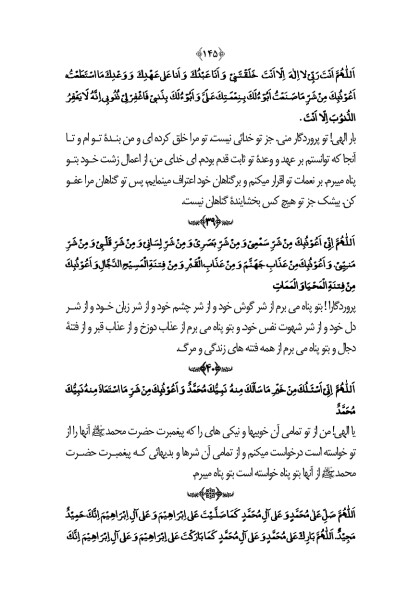 ﴿۱۴۵﴾
اَللّٰهُمَّ اَنْتَ رَبِّیْ لَا اِلٰهَ اِلَّا اَنْتَ خَلَقْتَنِیْ وَ اَنَا عَبْدُكَ وَ اَنَا عَلٰی عَهْدِكَ وَ وَعْدِكَ مَا اسْتَطَعْتُ
اَعُوْذُبِكَ مِنْ شَرِّ مَا صَنَعْتُ اَبُوْءُ لَكَ بِنِعْمَتِكَ عَلَیَّ وَ اَبُوْءُ لَكَ بِذَنْبِیْ فَاغْفِرْلِیْ ذُنُوْبِیْ اِنَّهٗ لَا یَغْفِرُ
الذُّنُوْبَ اِلَّا اَنْتَ .
بار الهی! تو پروردگار منی. جز تو خدائی نیست. تو مرا خلق کرده ای و من بندۀ تو ام و تا
آنجا که توانستم بر عهد و وعدۀ تو ثابت قدم بودم. ای خدای من، از اعمال زشت خود بتو
پناه میبرم. بر نعمات تو اقرار میکنم و بر گناهان خود اعتراف مینمایم. پس تو گناهان مرا عفو
کن. بیشک جز تو هیچ کس بخشایندۀ گناهان نیست.
﴿۳۹﴾
اَللّٰهُمَّ اِنِّیْ اَعُوْذُبِكَ مِنْ شَرِّ سَمْعِیْ وَ مِنْ شَرِّ بَصَرِیْ وَ مِنْ شَرِّ لِسَانِیْ وَ مِنْ شَرِّ قَلْبِیْ وَ مِنْ شَرِّ
مَنِیِّیْ. وَ اَعُوْذُبِكَ مِنْ عَذَابِ جَهَنَّمَ وَ مِنْ عَذَابِ الْقَبْرِ وَ مِنْ فِتْنَةِ الْمَسِیْحِ الدَّجَّالِ وَ اَعُوْذُبِكَ
مِنْ فِتْنَةِ الْمَحْیَا وَ الْمَمَاتِ
پروردگارا! بتو پناه می برم از شر گوش خود و از شر چشم خود و از شر زبان خود و از شر
دل خود و از شر شهوت نفس خود. و بتو پناه می برم از عذاب دوزخ و از عذاب قبر و از فتنۀ
دجال و بتو پناه می برم از همه فتنه های زندگی و مرگ.
﴿۴۰﴾
اَللّٰهُمَّ اِنِّیْ اَسْئَلُكَ مِنْ خَیْرِ مَا سَاَلَكَ مِنْهُ نَبِیُّكَ مُحَمَّدٌ وَ اَعُوْذُبِكَ مِنْ شَرِّ مَا اسْتَعَاذَ مِنْهُ نَبِیُّكَ
مُحَمَّدٌ
یا الهی! من از تو تمامی آن خوبیها و نیکی های را که پیغمبرت حضرت محمد ﷺ آنها را از
تو خواسته است درخواست میکنم و از تمامی آن شرها و بدیهائی که پیغمبرت حضرت
محمد ﷺ از آنها بتو پناه خواسته است بتو پناه میبرم.
اَللّٰهُمَّ صَلِّ عَلٰی مُحَمَّدٍ وَ عَلٰی آلِ مُحَمَّدٍ كَمَا صَلَّیْتَ عَلٰی اِبْرَاهِیْمَ وَ عَلٰی آلِ اِبْرَاهِیْمَ اِنَّكَ حَمِیْدٌ
مَجِیْدٌ. اَللّٰهُمَّ بَارِكْ عَلٰی مُحَمَّدٍ وَ عَلٰی آلِ مُحَمَّدٍ كَمَا بَارَكْتَ عَلٰی اِبْرَاهِیْمَ وَ عَلٰی آلِ اِبْرَاهِیْمَ اِنَّكَ